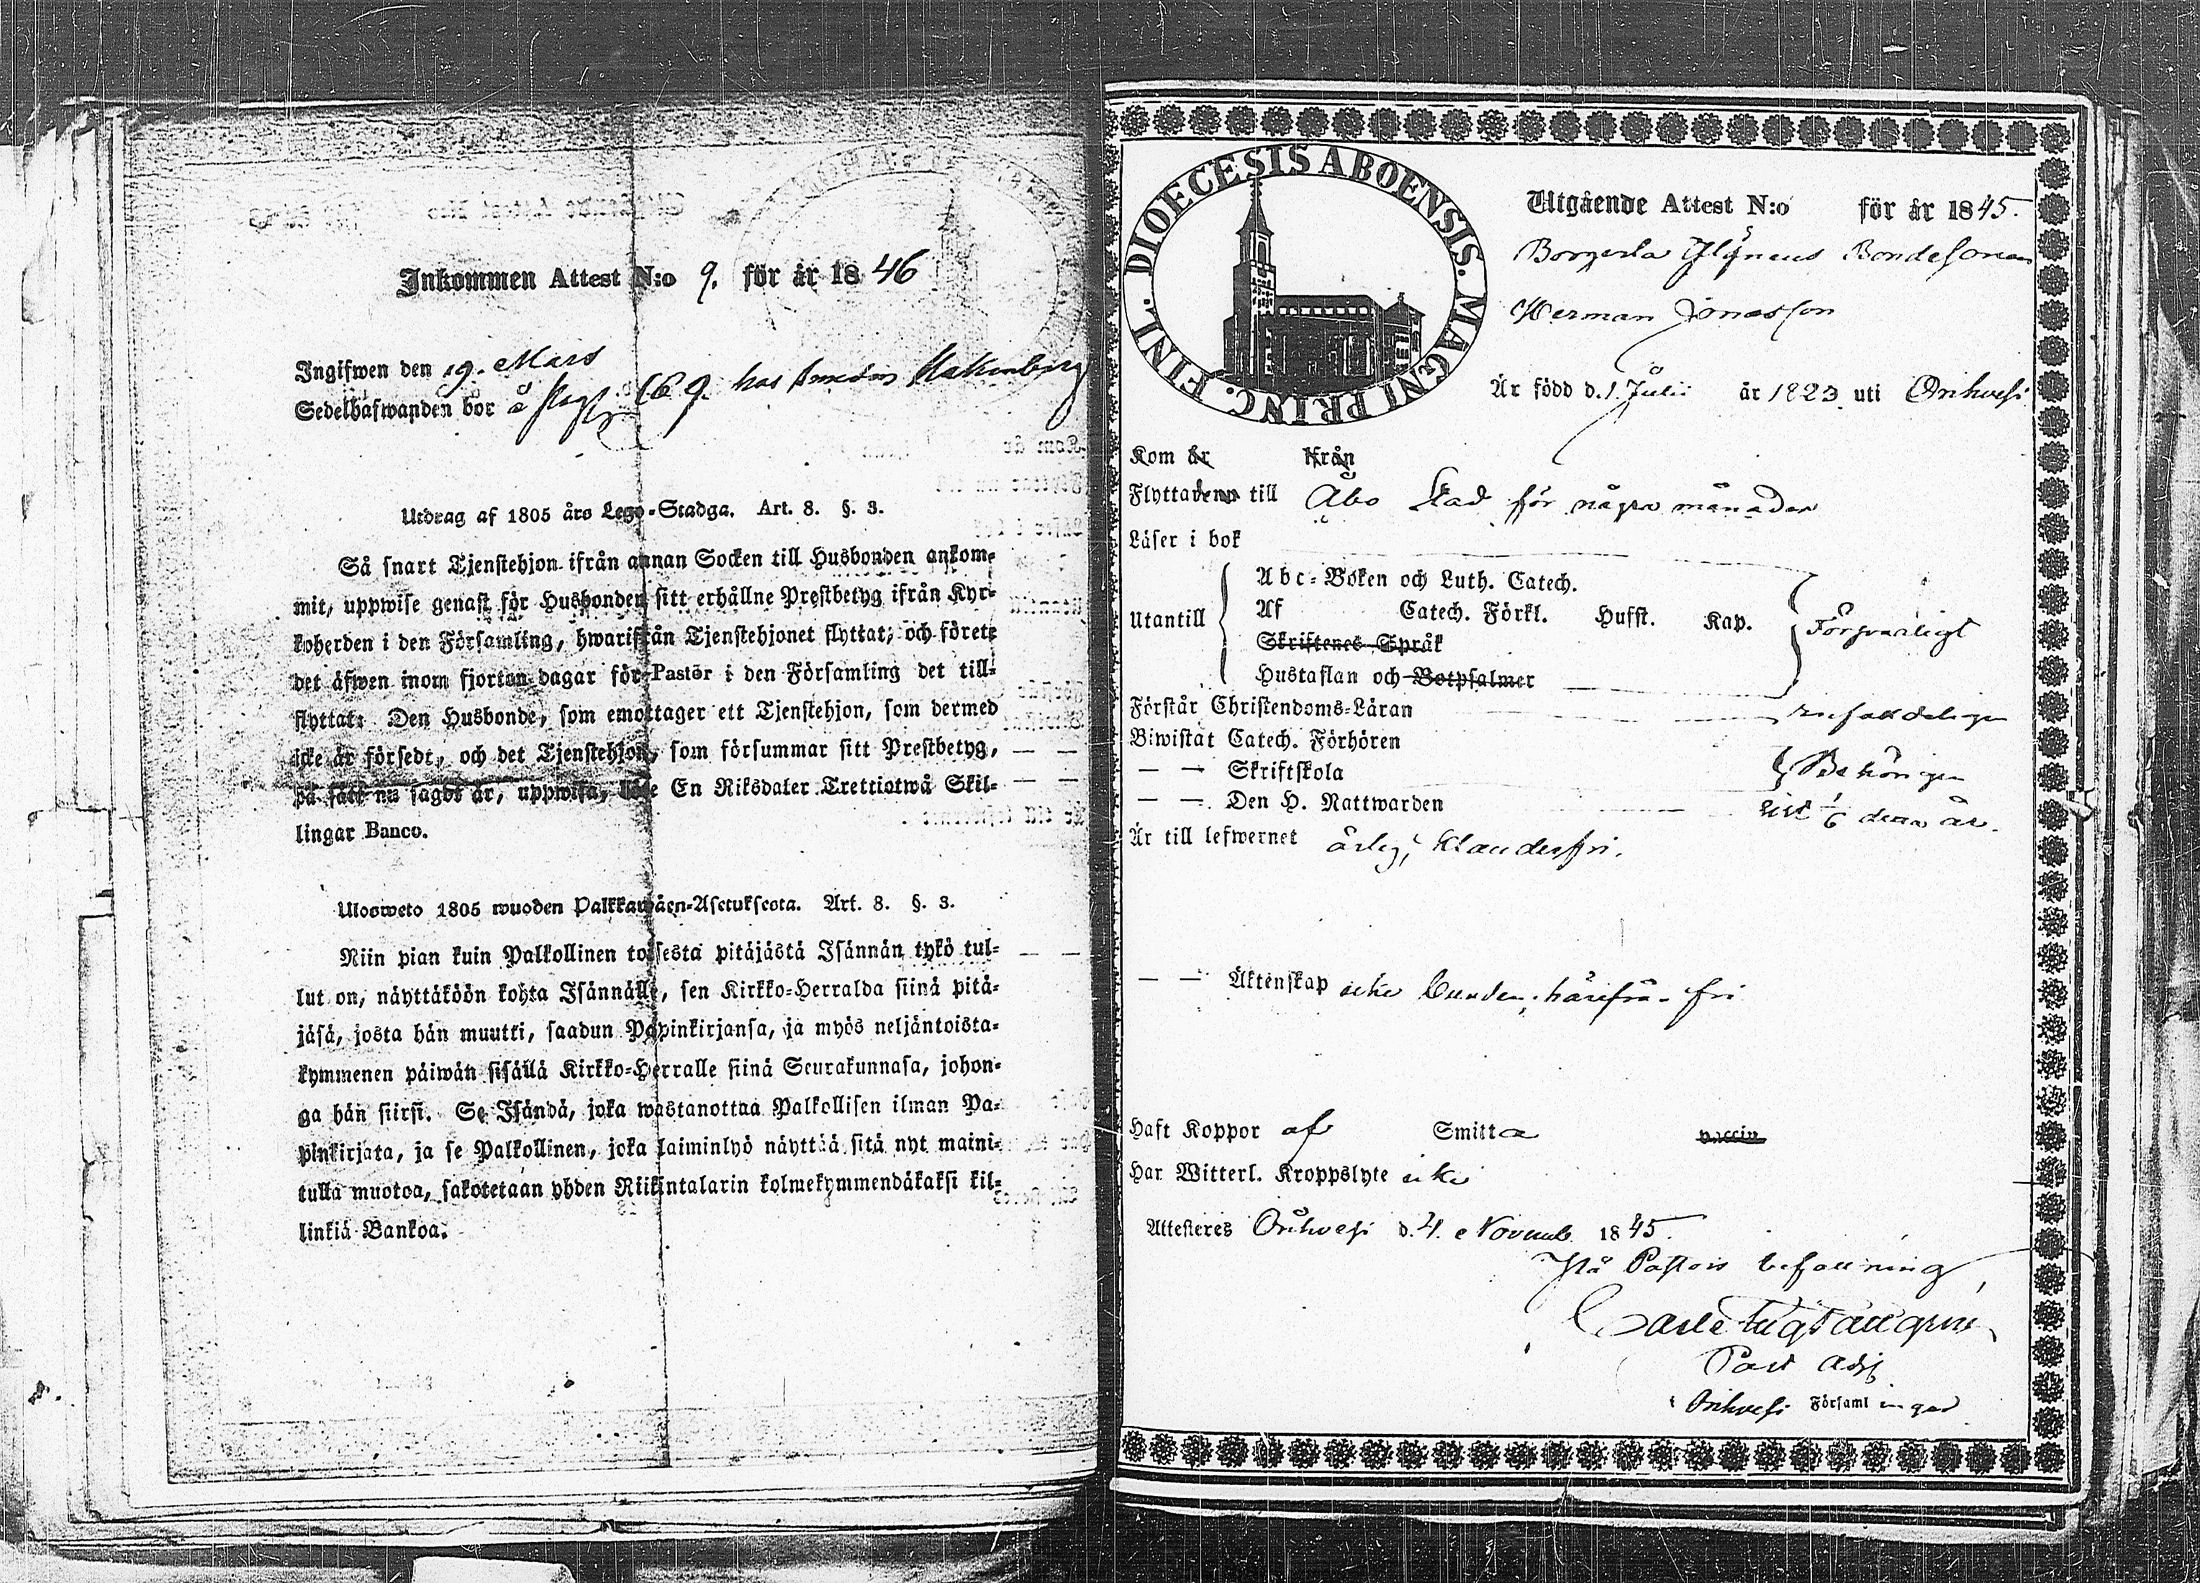 Inkommen Attest N:o 9. för år 1846
Ingifwen den 19. Mars
Sedelhafwanden bor å 9. hos
Utdrag af 1805 års Lego-Stadga. Art. 8. §. 3.
Så snart Tjenstehjon ifrån annan Socken till Husbonden ankom-
mit, uppwise genast för Husbonden sitt erhållne Prestbetyg ifrån Kyr-
koherden i den Församling, hwarifrån Tjenstehjonet flyttat, och förete
det äfwen inom fjorton dagar för Pastor i den Församling det till-
flyttat. Den Husbonde, som emottager ett Tjenstehjon, som dermed
icke är försedt, och det Tjenstehjon, som försummar sitt Prestbetyg,
på sätt nu sagdt är, uppwisa, böte En Riksdaler Trettiotwå Skil-
lingar Banco.
Ulosweto 1805 wuoden Palkkawäen-Asetuksesta. Art. 8. §. 3.
Niin pian kuin Palkollinen toisesta pitäjästä Isännän tykö tul-
lut on, näyttäköön kohta Isännälle, sen Kirkko-Herralda siinä pitä-
jäsä, josta hän muutti, saadun Papinkirjansa, ja myös neljäntoista-
kymmenen päiwän sisällä Kirkko-Herralle siinä Seurakunnasa, johon-
ga hän siirsi. Se Isändä, joka wastanottaa Palkollisen ilman Pa-
pinkirjata, ja se Palkollinen, joka laiminlyö näyttää sitä nyt maini-
tulla muotoa, sakotetaan yhden Riikintalarin kolmekymmendäkaksi kil-
linkiä Bankoa.
DIOECESIS ABOENSIS. MAGNI PRINC. FINL.
Utgående Attest N:o för år 1845.
Bondesonen
Herman Jonasson
Är född d. 1 Julii år 1823 uti Orihvesi
Kom år ifrån
Flyttade till Åbo Stad för några månader
Läser i bok
Abc-Boken och Luth. Catech.
Utantill Af Catech. Förkl. Husst. Kap. Försvarligt
Skriftenes Språk
Hustaflan och Botpsalmer
Förstår Christendoms-Läran
Biwistat Catech. Förhören
— — Skriftskola Behörigen
— — Den H. Nattwarden sist 1/6 detta år.
Är till lefwernet ärlig, klanderfri.
— — Äktenskap icke bunden, härifrån fri
Haft Koppor af Smitta vaccin
Har Witterl. Kroppslyte icke
Attesteres Orihvesi d. 4. Novemb. 1845.
På Pastors befallning
Past Adj
i Orihvesi Församlingar